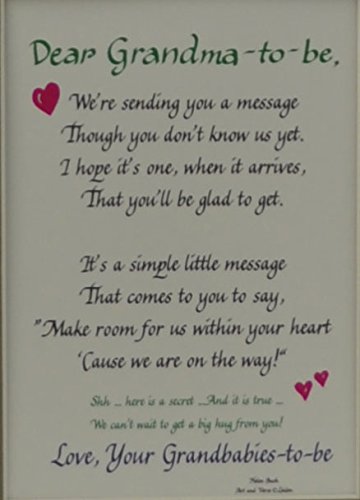 Dear Grandma-to-be,
We're sending you a message
Though you don't know us yet.
I hope it's one, when it arrives,
That you'll be glad to get.
It's a simple little message
That comes to you to say,
"Make room for us within your heart
'Cause we are on the way!"
Shh ... here is a secret ...And it is true ...
We can't wait to get a big hug from you!
Love, Your Grandbabies-to-be
Art and Verse